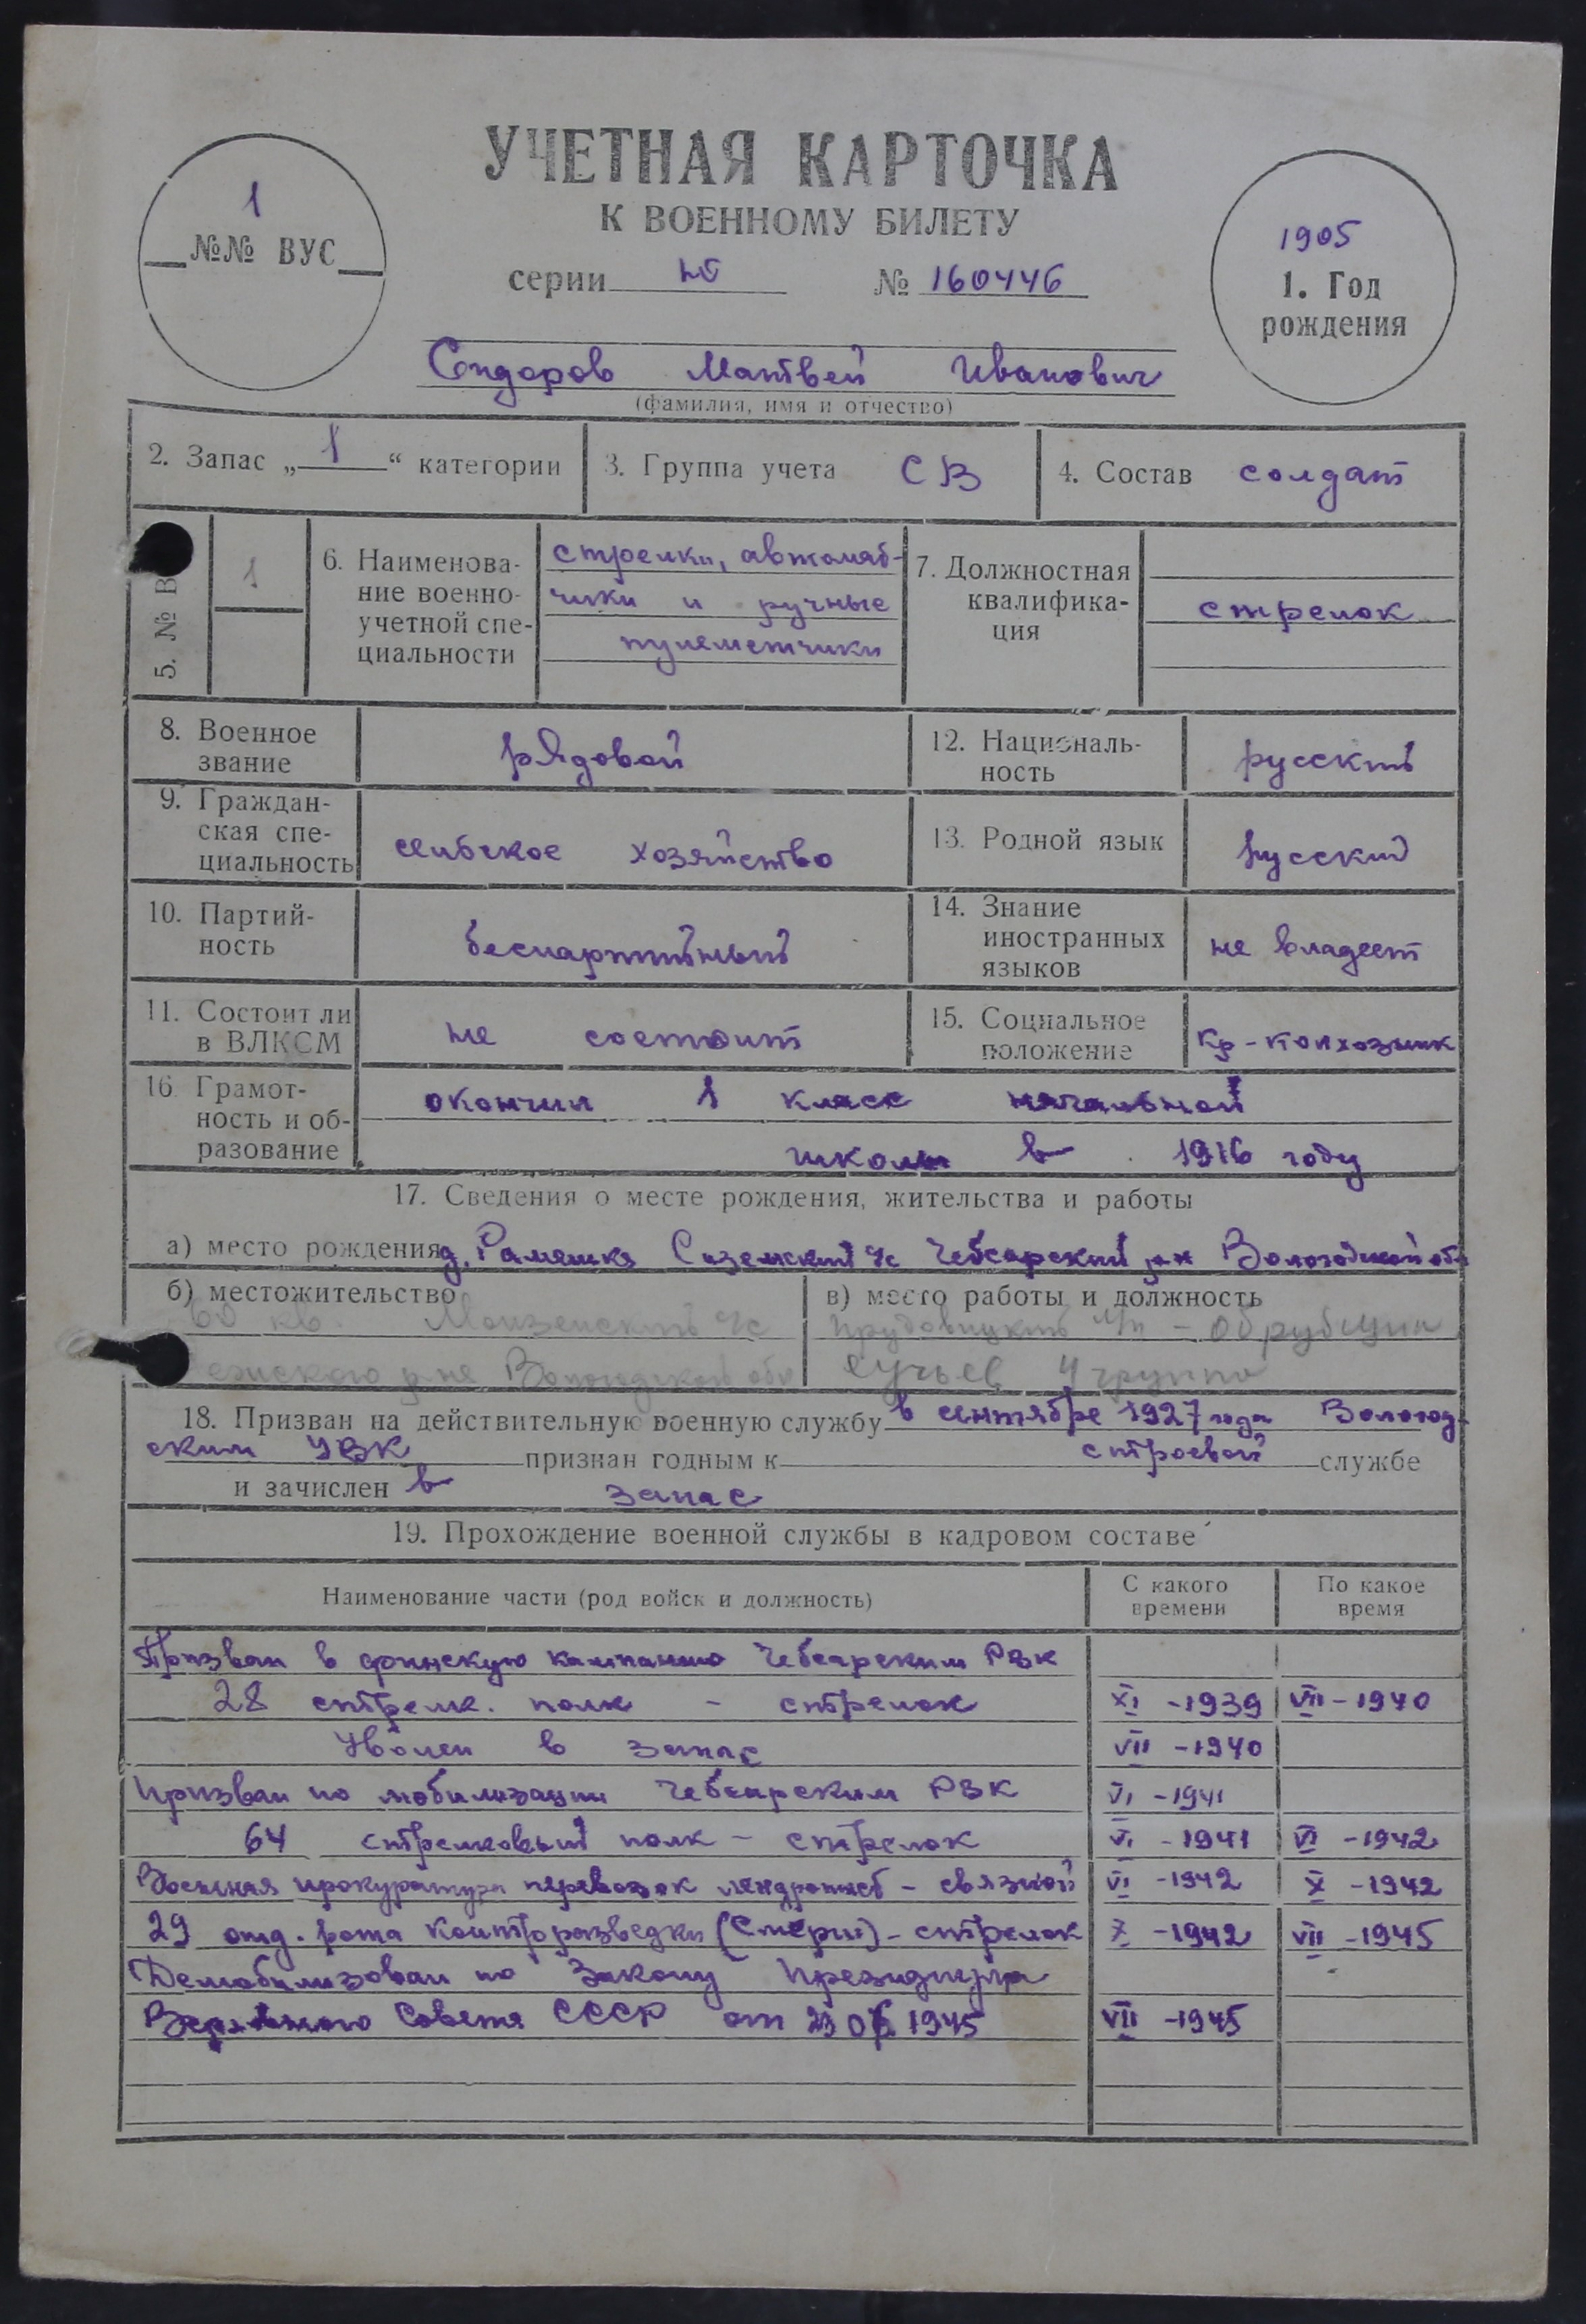 УЧЕТНАЯ КАРТОЧКА
К ВОЕННОМУ БИЛЕТУ
1
№№ ВУС
серии № 160446
1905
1. Год рождения
Сидоров Матвей Иванович
(фамилия, имя и отчество)
2. Запас „1“ категории
3. Группа учета СВ
4. Состав солдат
5. № В
1
6. Наименова-
ние военно-
учетной спе-
циальности
стрелки, автомат-
чики и ручные
пулеметчики
7. Должностная
квалифика-
ция
стрелок
8. Военное
звание
рядовой
12. Националь-
ность
русский
9. Граждан-
ская спе-
циальность
сельское хозяйство
13. Родной язык
русский
10. Партий-
ность
беспартийный
14. Знание
иностранных
языков
не владеет
11. Состоит ли
в ВЛКСМ
не состоит
15. Социальное
положение
кр-колхозник
16. Грамот-
ность и об-
разование
окончил 1 класс начальной
школы в 1916 году
17. Сведения о месте рождения, жительства и работы
а) место рождения д. Рамешка Сиземский с/с Чебсарский р-н Вологодской обл
б) местожительство
60 кв. Монзенский с/с
р-на Вологодской обл
в) место работы и должность
л/п - обрубщик
сучьев 4 группа
18. Призван на действительную военную службу в сентябре 1927 года Вологод-
ским УВК признан годным к строевой службе
и зачислен в запас
19. Прохождение военной службы в кадровом составе
Наименование части (род войск и должность)
С какого
времени
По какое
время
Призван в финскую кампанию Чебсарским РВК
28 стрелк. полк - стрелок XI -1939 VII -1940
Уволен в запас VII -1940
Призван по мобилизации Чебсарским РВК VI -1941
64 стрелковый полк - стрелок VI -1941 VI -1942
Военная прокуратура перевозок - связной VI -1942 X -1942
29 отд. рота контрразведки (Смерш) - стрелок X -1942 VII -1945
Демобилизован по Закону Президиума
Верховного Совета СССР от 23 06 1945 VII -1945